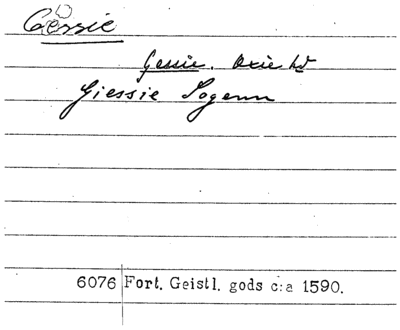 Gessie
Gessie. Oxie hd
Giessie Sogenn
6076 Fort. Geistl. gods c:a 1590.